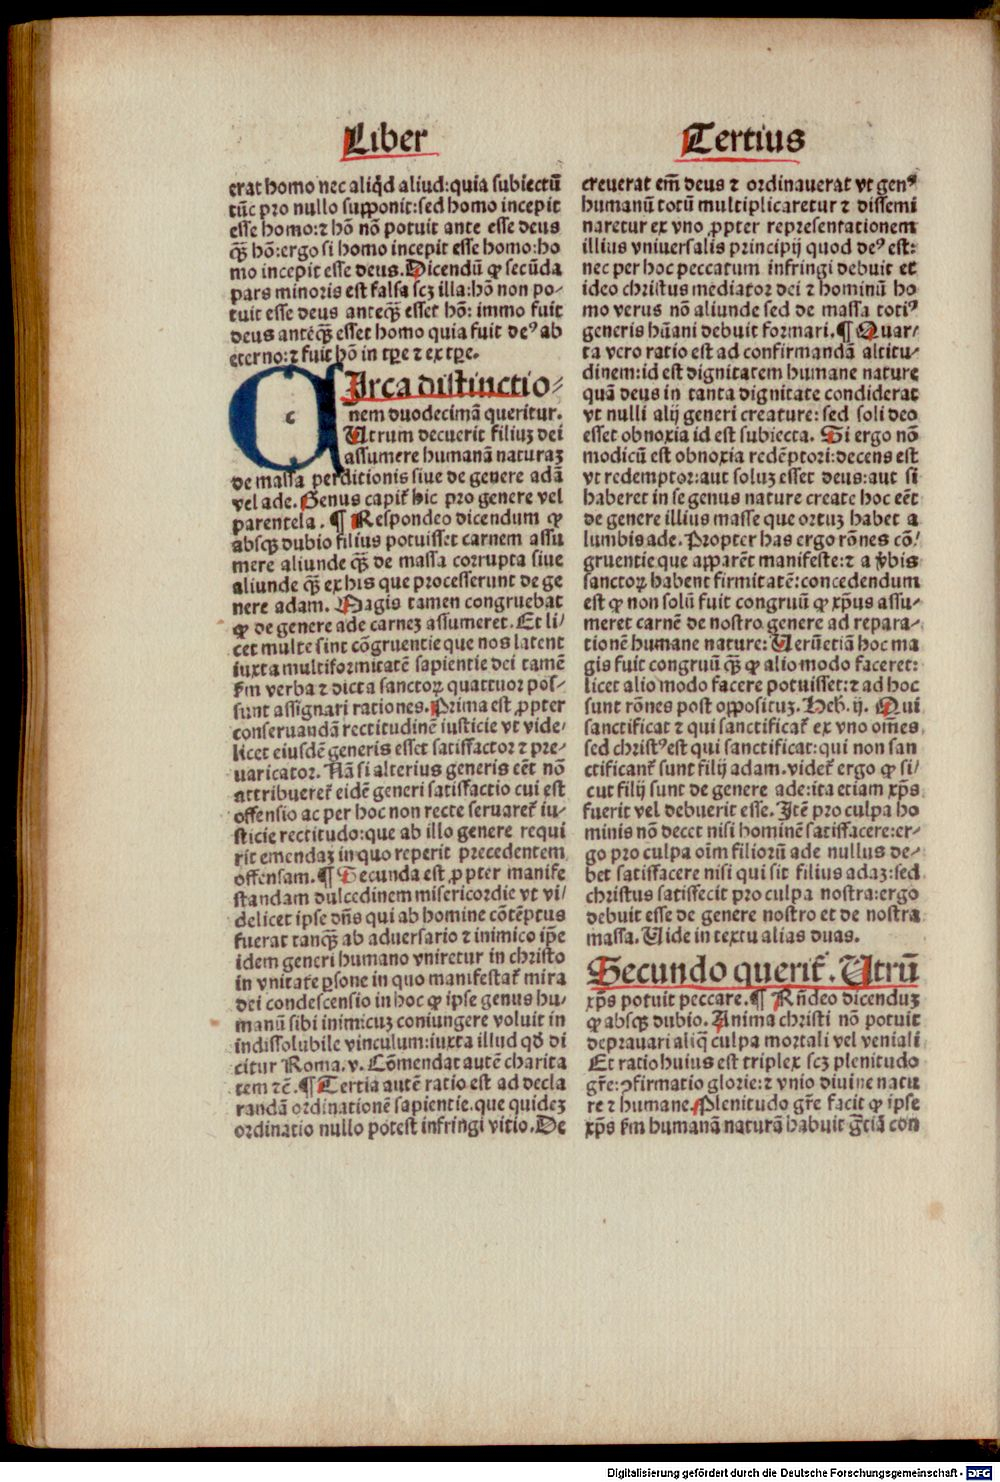 Liber
erat homo nec aliqd̛ aliud:quia subiectū
tūc pro nullo supponit:sed homo incepit
esse homo:⁊ hō nō potuit ante esse deus
qȝ̄ hō:ergo si homo incepit esse homo:ho
mo incepit esse deus.Dicendū ꝙ secūda
pars minoris est falsa scȝ illa:hō non po-
tuit esse deus anteqȝ̄ esset hō: immo fuit
deus anteqȝ̄ esset homo quia fuit deꝰ ab
eterno:⁊ fuit hō in tꝑe ⁊ ex tꝑe.
c
Irca distinctio-
nem duodecimā queritur.
Utrum decuerit filiuȝ dei
assumere humanā naturaȝ
de massa perditionis siue de genere adā
vel ade. Genus capit᷑ hic pro genere vel
parentela. ¶ Respondeo dicendum ꝙ
absqȝ dubio filius potuisset carnem assu
mere aliunde qȝ̄ de massa corrupta siue
aliunde qȝ̄ ex his que processerunt de ge
nere adam. Magis tamen congruebat
ꝙ de genere ade carneȝ assumeret. Et li/
cet multe sint cōgruentie que nos latent
iuxta multiformitatē sapientie dei tamē
ẜm verba ⁊ dicta sanctoꝝ quattuor pos-
sunt assignari rationes. Prima est ꝓpter
conseruandā rectitudinē iusticie vt vide/
licet eiusdē generis esset satisfactor ⁊ pre/
uaricator. Nā si alterius generis eēt nō
attribueret᷑ eidē generi satisfactio cui est
offensio ac per hoc non recte seruaret᷑ iu/
sticie rectitudo:que ab illo genere requi
rit emendaȝ in quo reperit precedentem
offensam. ¶ Secunda est ꝓpter manife
standam dulcedinem misericordie vt vi/
delicet ipse dn̄s qui ab homine cōtēptus
fuerat tanqȝ̄ ab aduersario ⁊ inimico ip̄e
idem generi humano vniretur in christo
in vnitate ꝑsone in quo manifestat᷑ mira
dei condescensio in hoc ꝙ ipse genus hu/
manū sibi inimicuȝ coniungere voluit in
indissolubile vinculum:iuxta illud qd̛ di
citur Roma. v. Cōmendat autē charita
tem ⁊c̄. ¶ Tertia autē ratio est ad decla
randā ordinationē sapientie. que quideȝ
ordinatio nullo potest infringi vitio. De
Tertius
creuerat em̄ deus ⁊ ordinauerat vt genꝰ
humanū totū multiplicaretur ⁊ dissemi
naretur ex vno ꝓpter representationem
illius vniuersalis principij quod deꝰ est:
nec per hoc peccatum infringi debuit et
ideo christus mediator dei ⁊ hominū ho
mo verus nō aliunde sed de massa totiꝰ
generis hūani debuit formari. ¶ Quar/
ta vero ratio est ad confirmandā altitu/
dinem:id est dignitatem humane nature
quā deus in tanta dignitate condiderat
vt nulli alij generi creature: sed soli deo
esset obnoxia id est subiecta. Si ergo nō
modicū est obnoxia redēptori:decens est
vt redemptor:aut soluȝ esset deus:aut si
haberet in se genus nature create hoc eēt
de genere illius masse que ortuȝ habet a
lumbis ade. Propter has ergo rōnes cō/
gruentie que apparēt manifeste:⁊ a v̄bis
sanctoꝝ habent firmitatē:concedendum
est ꝙ non solū fuit congruū ꝙ xp̄us assu/
meret carnē de nostro genere ad repara/
tionē humane nature: Uerūetiā hoc ma
gis fuit congruū qȝ̄ ꝙ alio modo faceret:
licet alio modo facere potuisset:⁊ ad hoc
sunt rōnes post opposituȝ. Heb̄. ij. Qui
sanctificat ⁊ qui sanctificat᷑ ex vno om̄es
sed christꝰ est qui sanctificat:qui non san
ctificant᷑ sunt filij adam. videt᷑ ergo ꝙ si/
cut filij sunt de genere ade:ita etiam xp̄s
fuerit vel debuerit esse. Itē pro culpa ho
minis nō decet nisi hominē satisfacere:er/
go pro culpa oīm filiorū ade nullus de/
bet satisfacere nisi qui sit filius adaȝ:sed
christus satisfecit pro culpa nostra:ergo
debuit esse de genere nostro et de nostra
massa. Uide in textu alias duas.
Secundo querit᷑. Utrū
xp̄s potuit peccare. ¶ Rn̄deo dicenduȝ
ꝙ absqȝ dubio. Anima christi nō potuit
deprauari aliq̄ culpa mortali vel veniali
Et ratio huius est triplex scȝ plenitudo
gr̄e:ꝯfirmatio glorie:⁊ vnio diuine natu
re ⁊ humane. Plenitudo gr̄e facit ꝙ ipse
xp̄s ẜm humanā naturā habuit gr̄tiā con
Digitalisierung gefördert durch die Deutsche Forschungsgemeinschaft - DFG